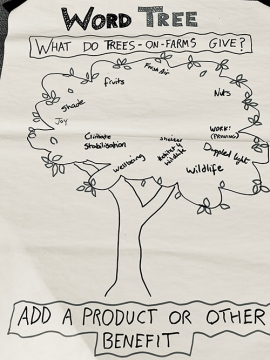 WORD TREE
WHAT DO TREES-ON-FARMS GIVE?
Fresh Air
fruits
Nuts
shade
JOY
WORK!
(PRUNING)
Climate
Stabilisation
shelter
habitat 4
wildlife
Dappled light
wellbeing
Wildlife
ADD A PRODUCT OR OTHER
BENEFIT